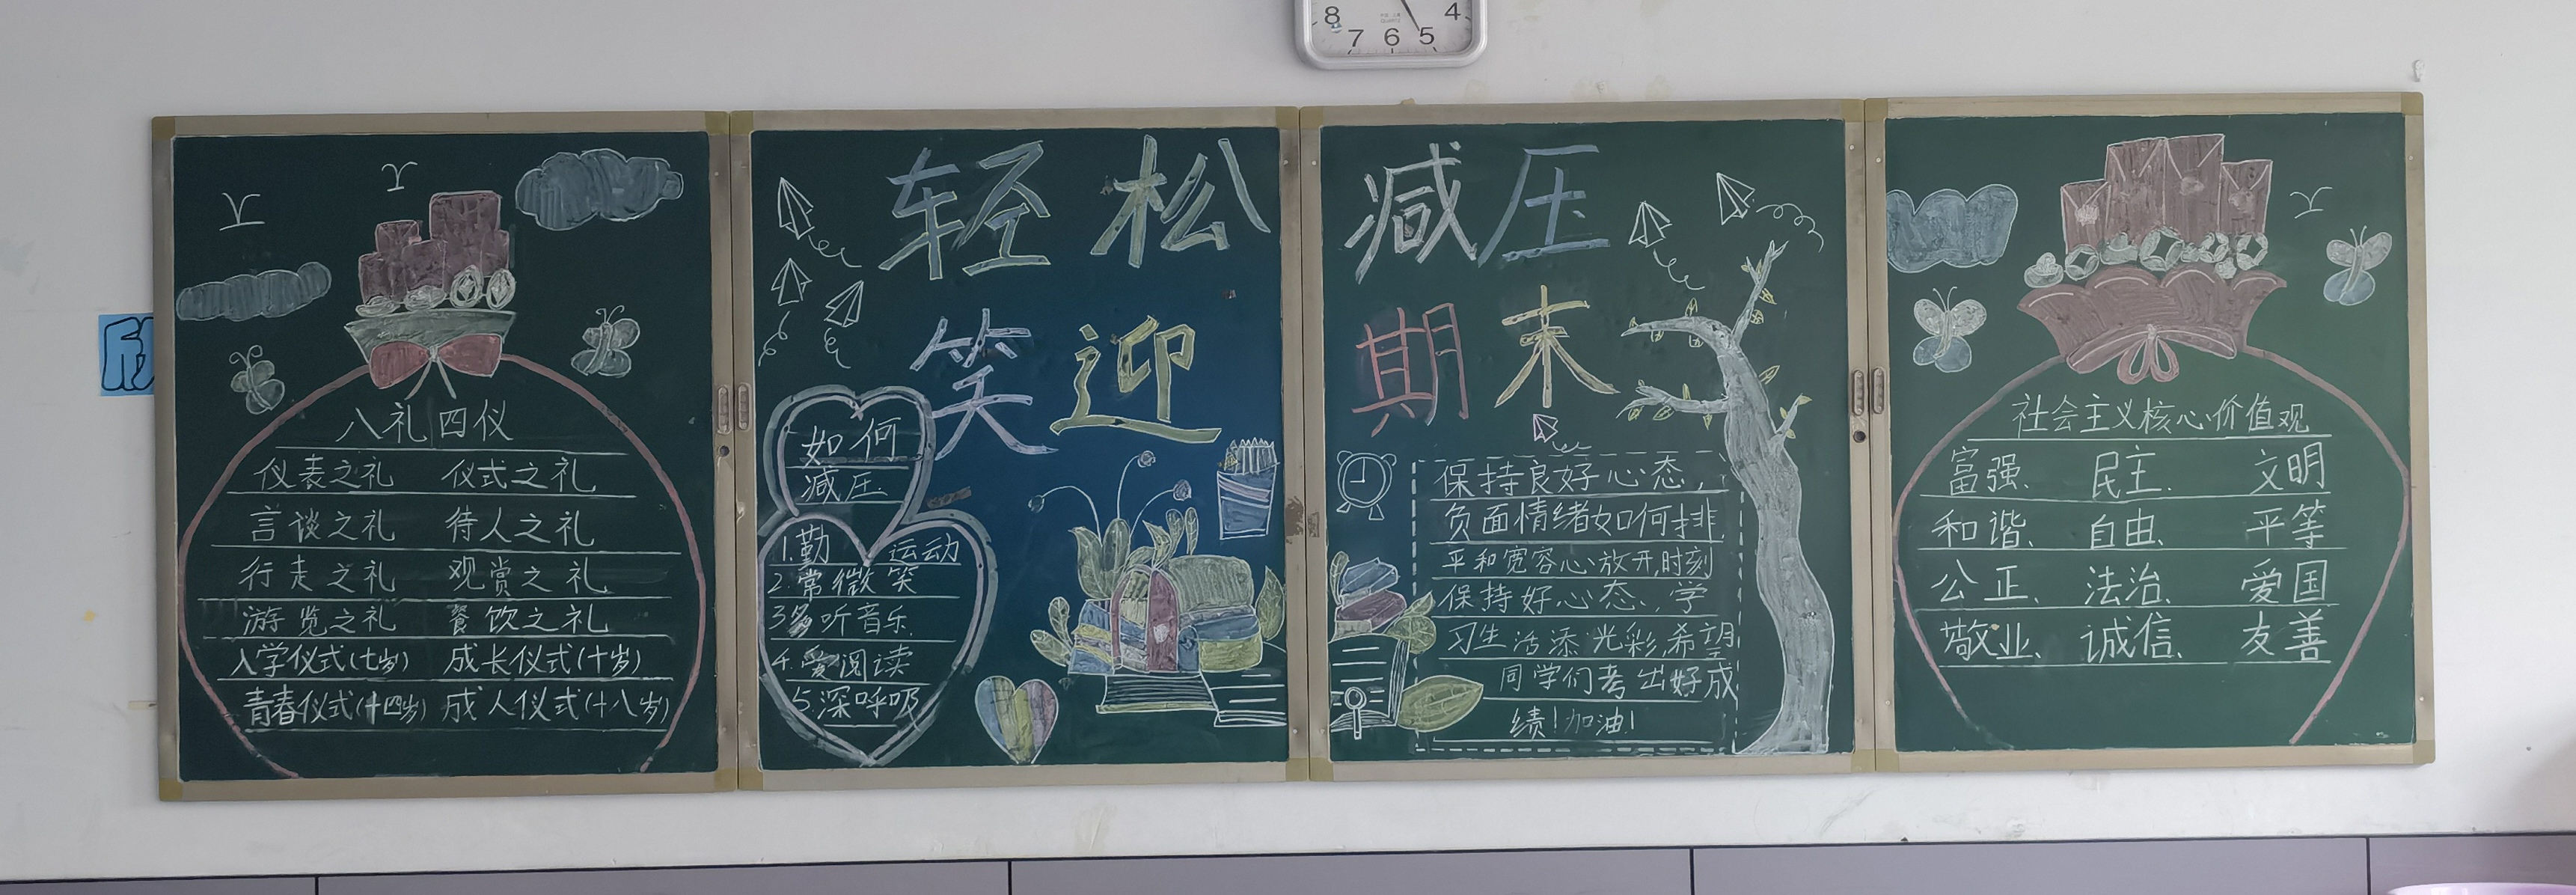 8 4
7 6 5
八礼四仪
仪表之礼 仪式之礼
言谈之礼 待人之礼
行走之礼 观赏之礼
游览之礼 餐饮之礼
入学仪式(七岁) 成长仪式(十岁)
青春仪式(十四岁) 成人仪式(十八岁)
轻松 减压
笑迎 期末
如何
减压
1.勤 运动
2.常微笑
3多听音乐.
4.爱阅读
5.深呼吸
保持良好心态,
负面情绪如何排
平和宽容心放开,时刻
保持好心态,学
习生活添光彩,希望
同学们考出好成
绩!加油!
社会主义核心价值观
富强、民主、文明
和谐、自由、平等
公正、法治、爱国
敬业、诚信、友善